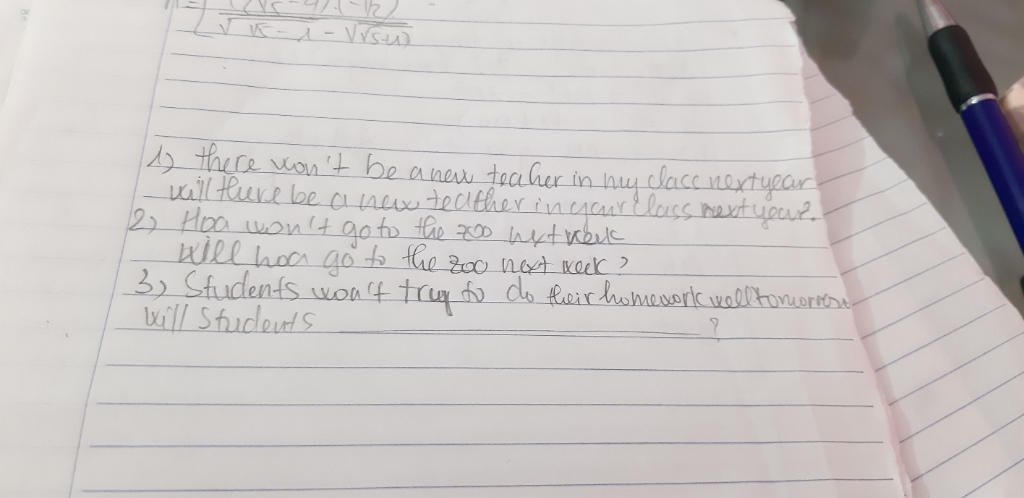 1) there won't be a new teacher in my class next year
will there be a new teather in your class next year?
2) Hoa won't go to the zoo next week
will hoa go to the zoo next week?
3) Students won't try to do their homework well tomorrow
will students ?